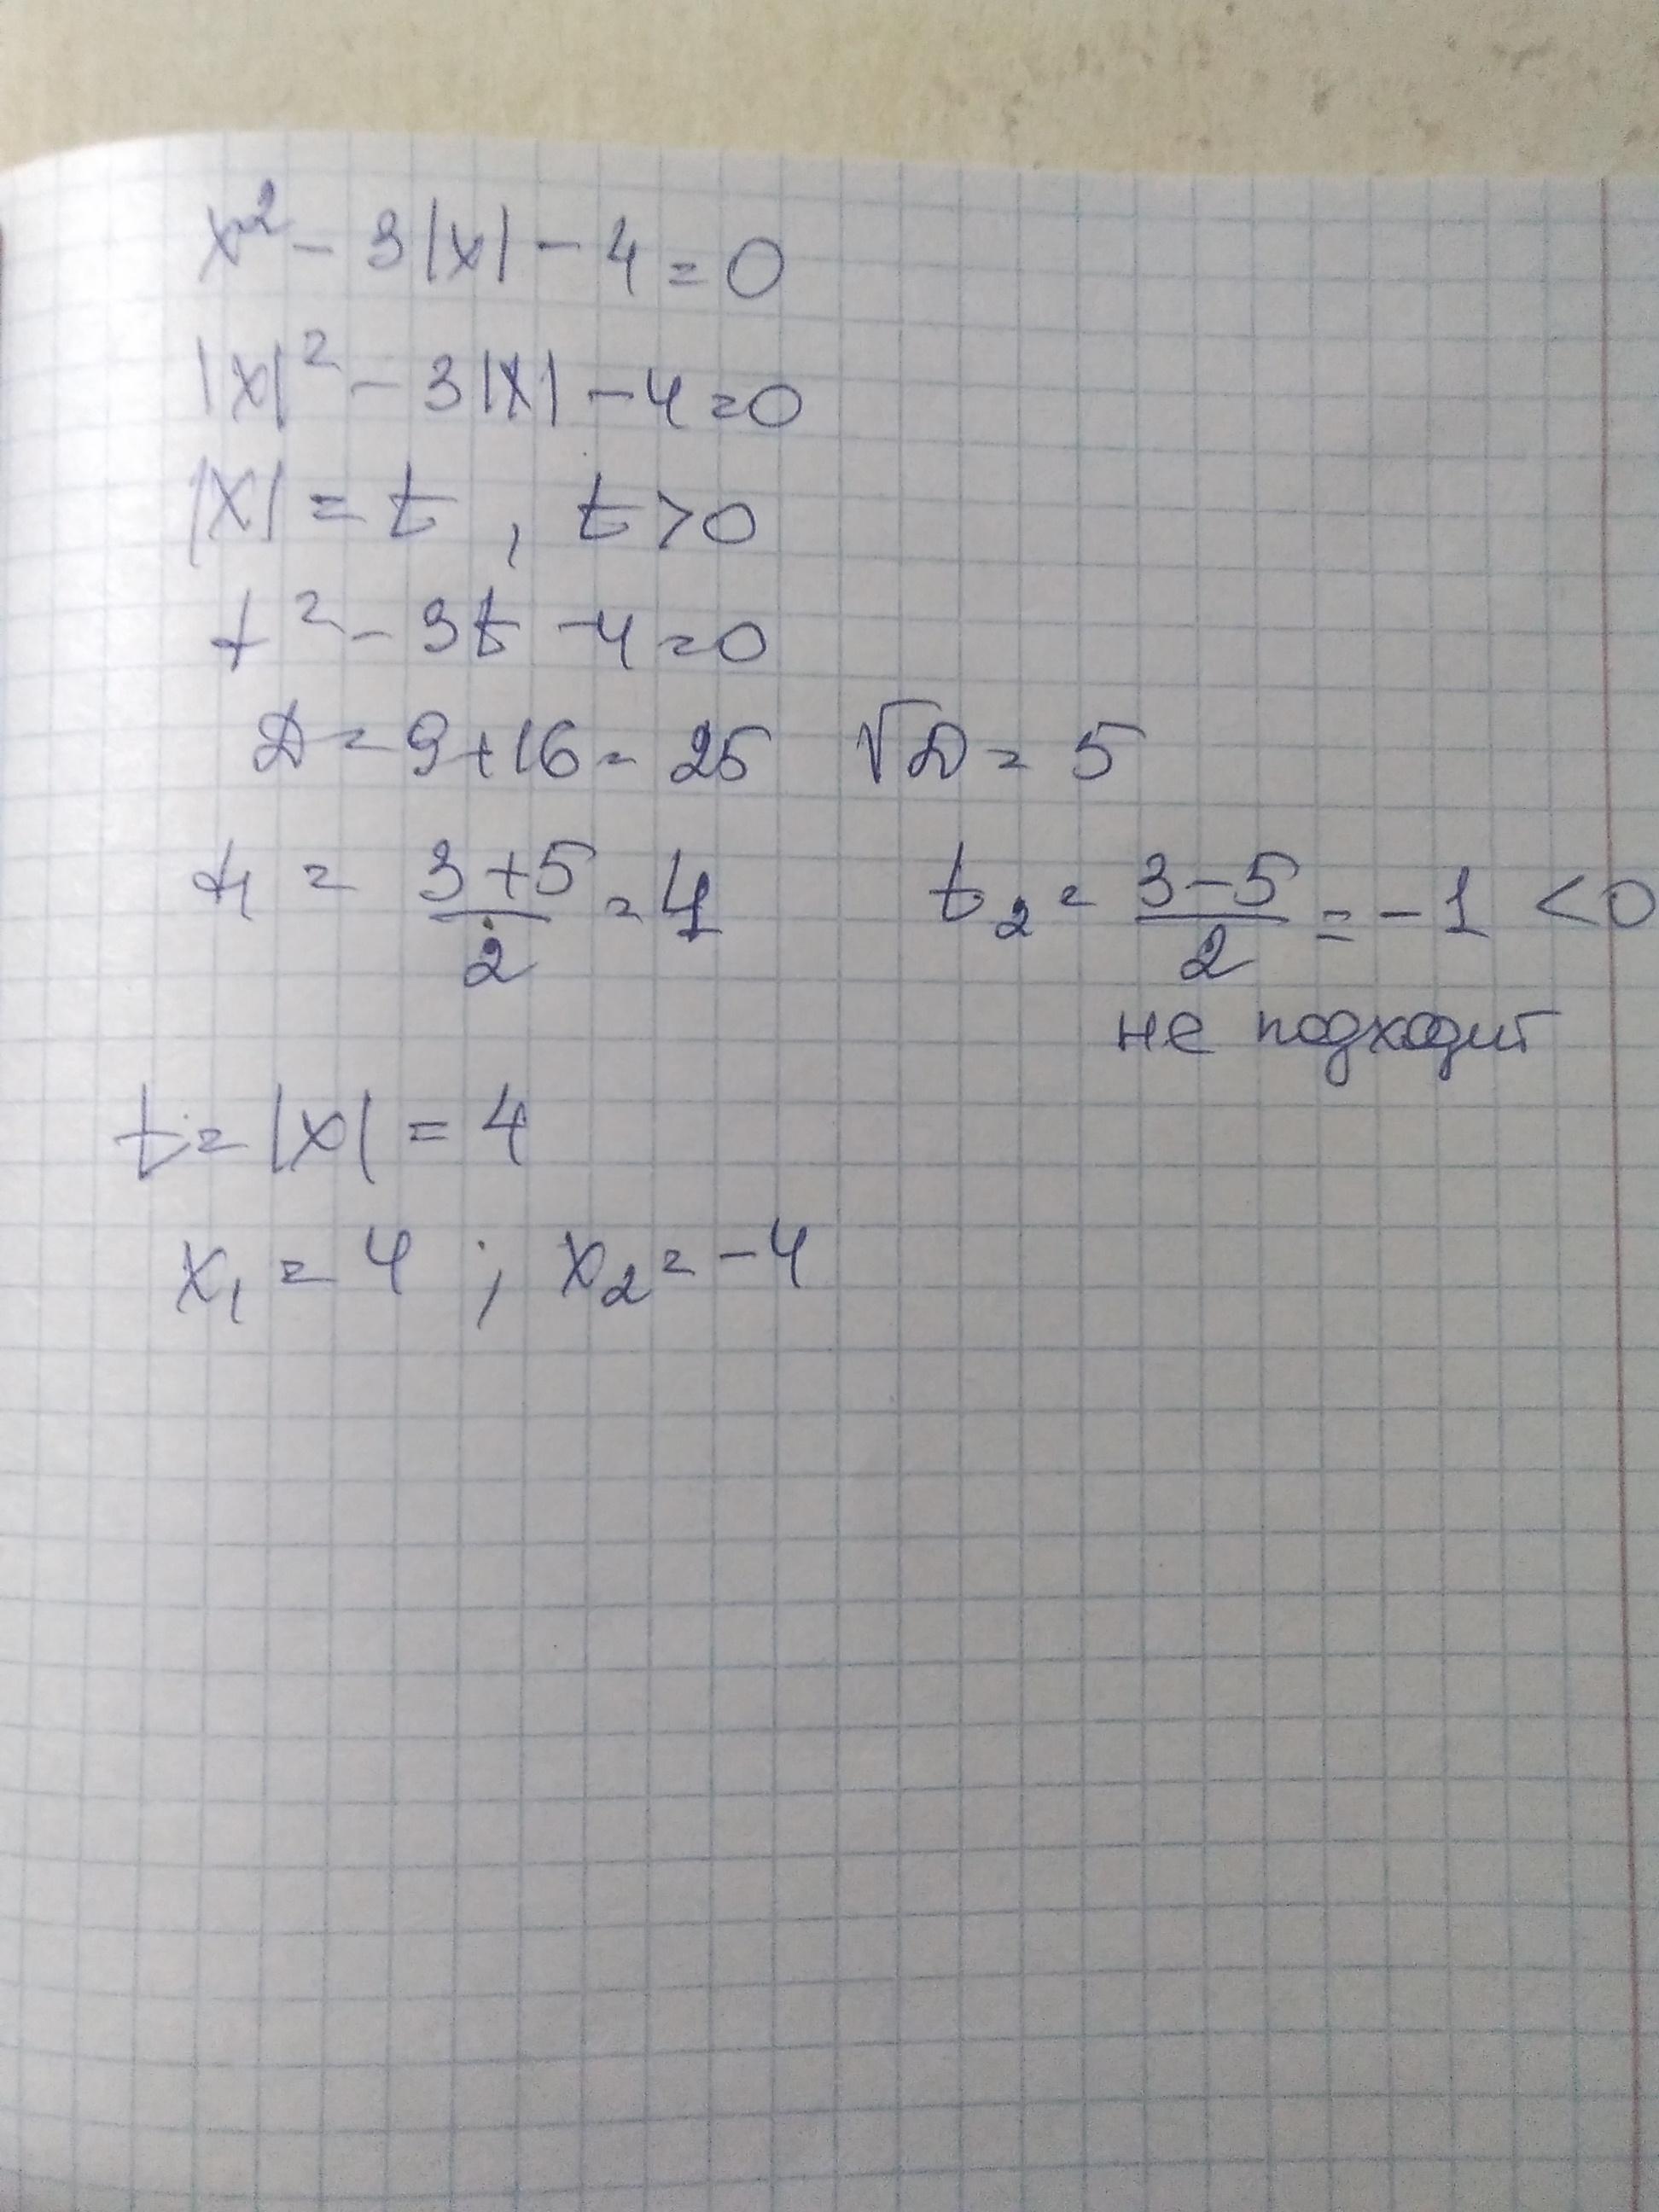 x² - 3|x| - 4 = 0
|x|² - 3|x| - 4 = 0
|x| = t , t > 0
t² - 3t - 4 = 0
D = 9 + 16 = 25 √D = 5
t₁ = (3+5)/2 = 4 t₂ = (3-5)/2 = -1 < 0
не подходит
t = |x| = 4
x₁ = 4 ; x₂ = -4